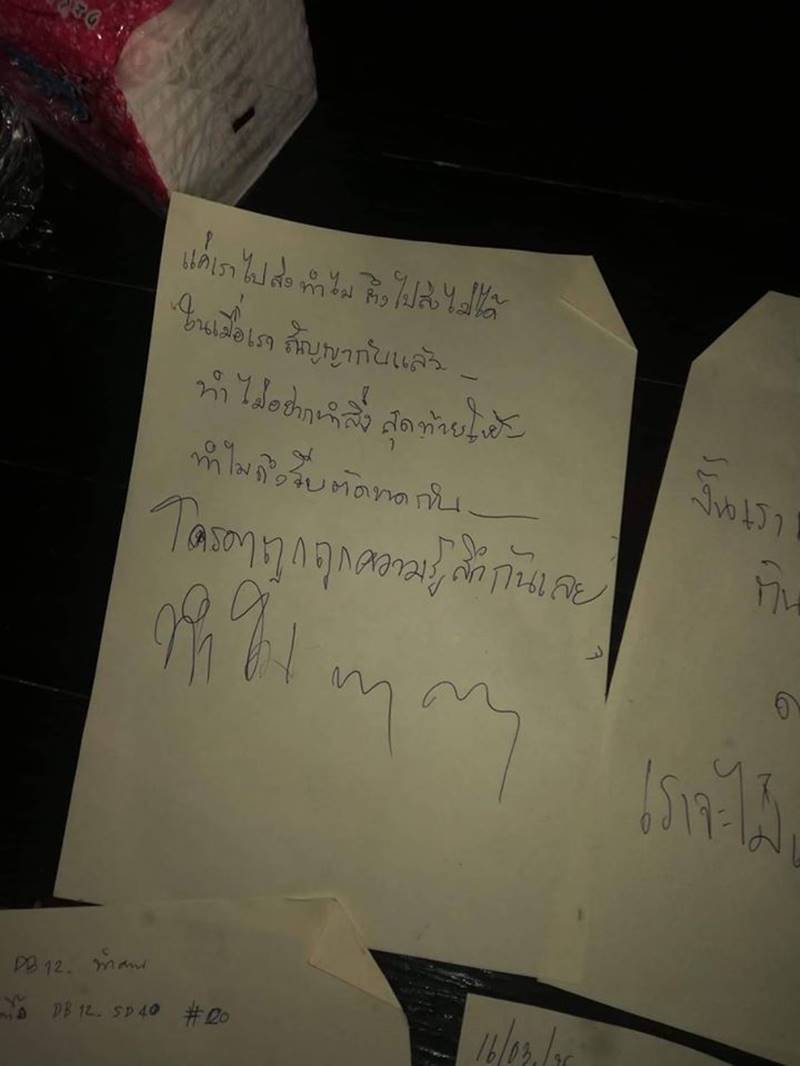 แค่เราไปส่งทำไม ถึงไปส่งไม่ได้
ในเมื่อเรา สัญญากันแล้ว
ทำไม่อยากทำสิ่ง สุดท้ายให้
ทำไมถึงรีบตัดขาดกัน
ถูกความรู้สึกกันเลย
ทำไม
งั้นเรา
กัน
เราจะไม่
DB12.
DB12 SD40 #20
16/03/